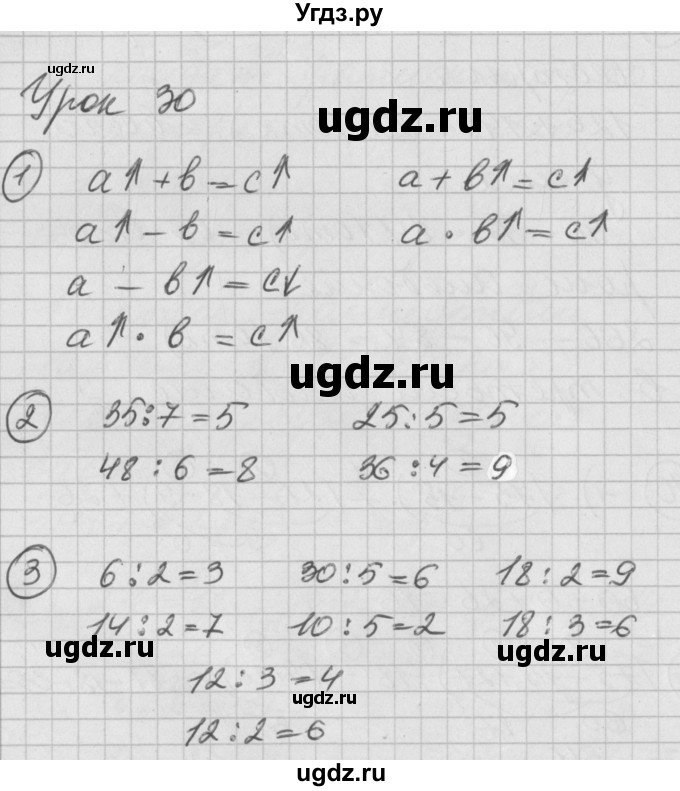 Угдз.ру
ugdz.ru
Урок 30
ugdz.ru
1 a↑ + в = c↑ a + в↑ = c↑
a↑ - в = c↑ a · в↑ = c↑
a - в↑ = c↓
a↑ · в = c↑
ugdz.ru
2 35:7=5 25:5=5
48:6=8 36:4=9
3 6:2=3 30:5=6 18:2=9
14:2=7 10:5=2 18:3=6
ugdz.ru ugdz.ru
12:3=4
ugdz.ru
12:2=6
ugdz.ru